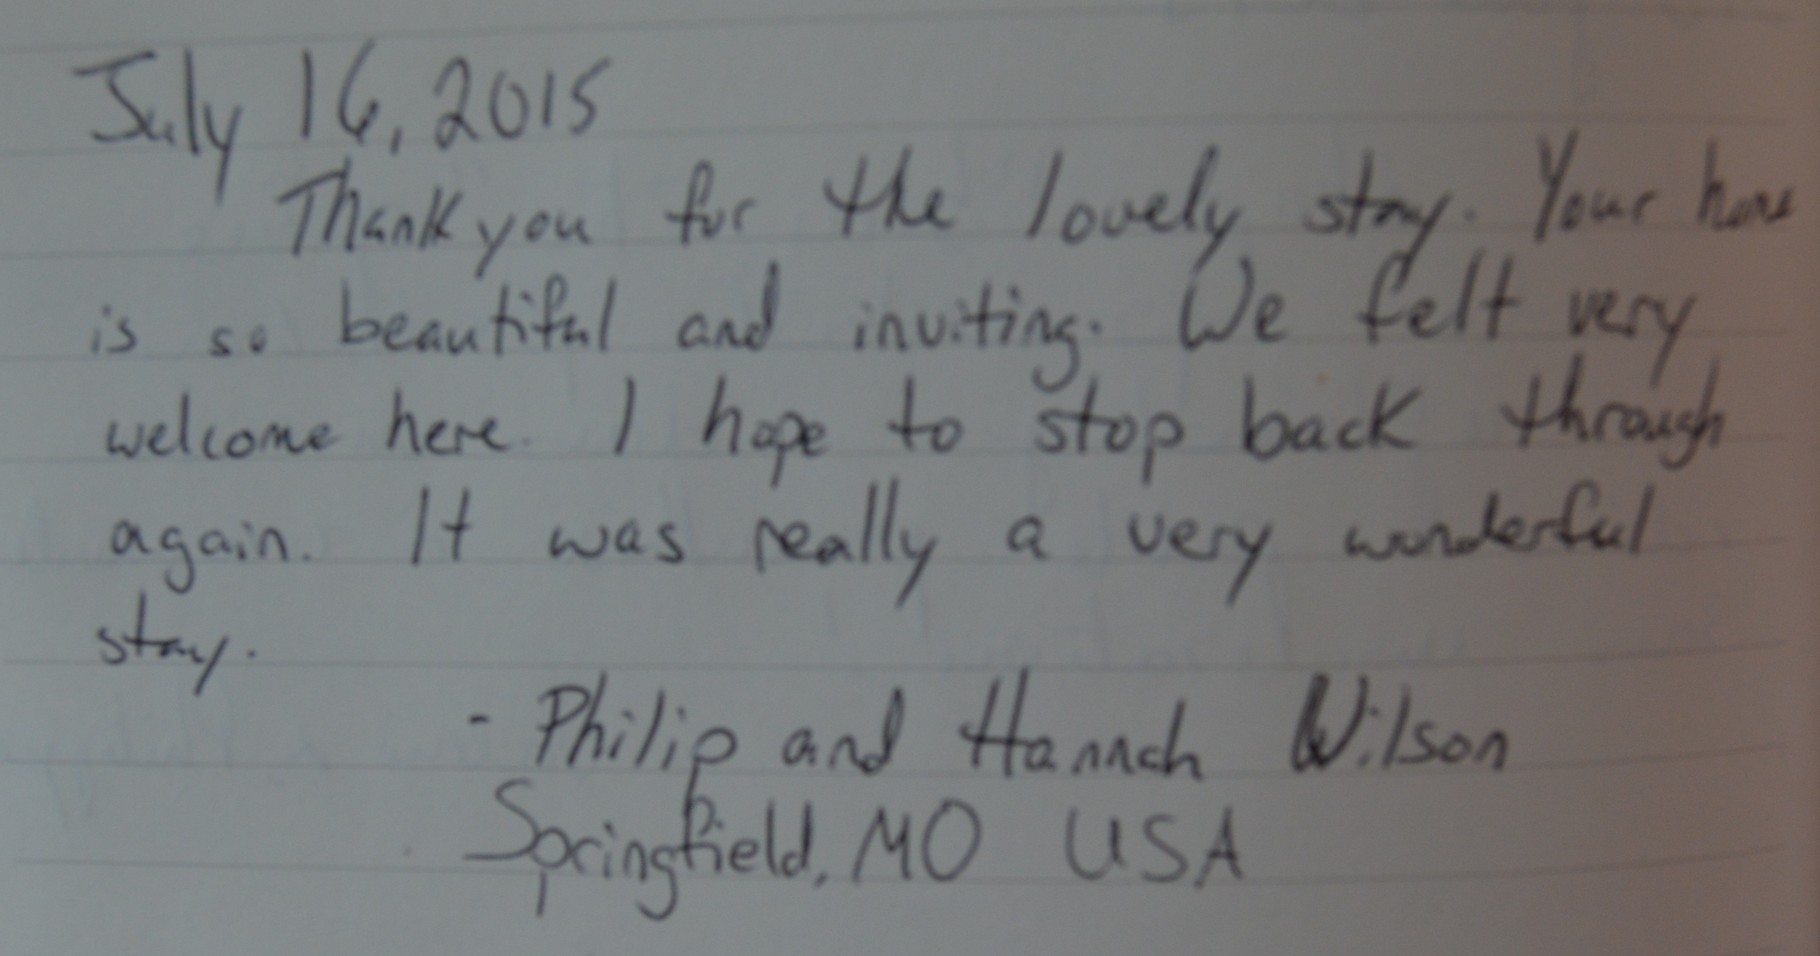 July 16, 2015
Thank you for the lovely stay. Your home
is so beautiful and inviting. We felt very
welcome here. I hope to stop back through
again. It was really a very wonderful
stay.
- Philip and Hannah Wilson
Springfield, MO USA